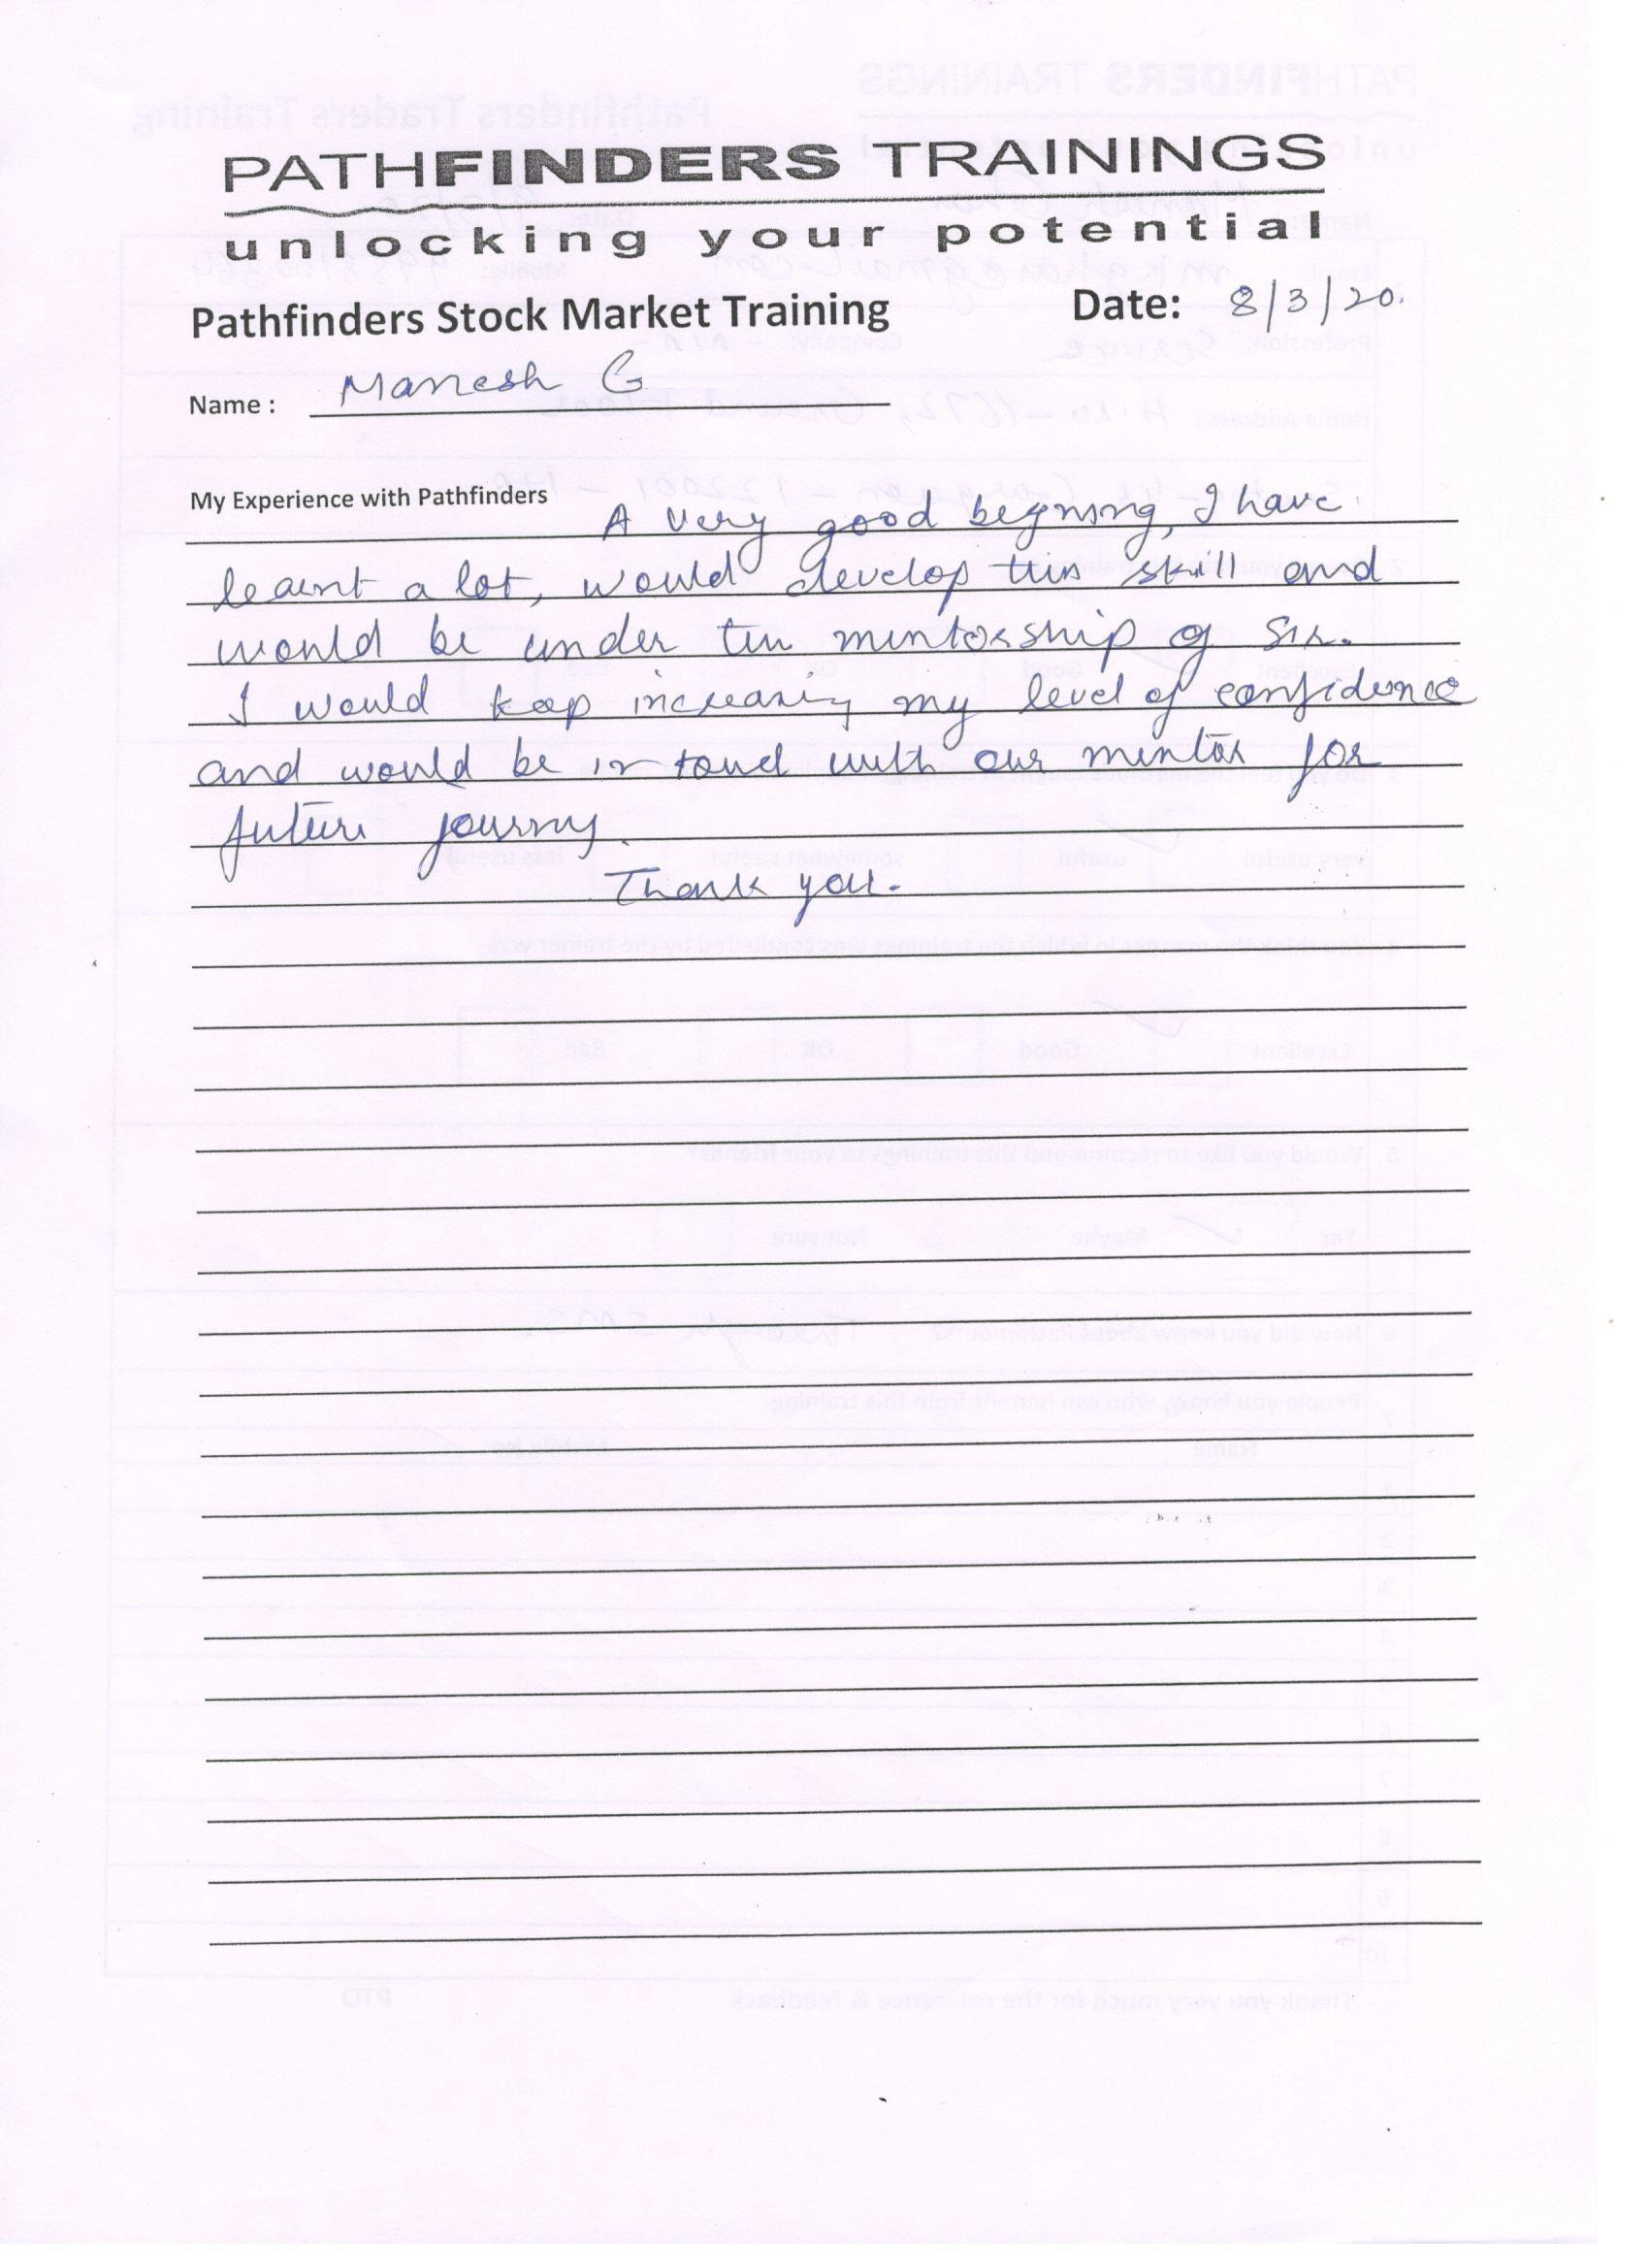 PATHFINDERS TRAININGS
unlocking your potential
Pathfinders Stock Market Training Date: 8/3/20.
Name : Manesh G
My Experience with Pathfinders A very good begnsng, I have
learnt a lot, would develop this skill and
would be under the mintorship of Sir.
I would keep increasing my level of confidence
and would be in touch with our mentor for
future journy.
Thank you.